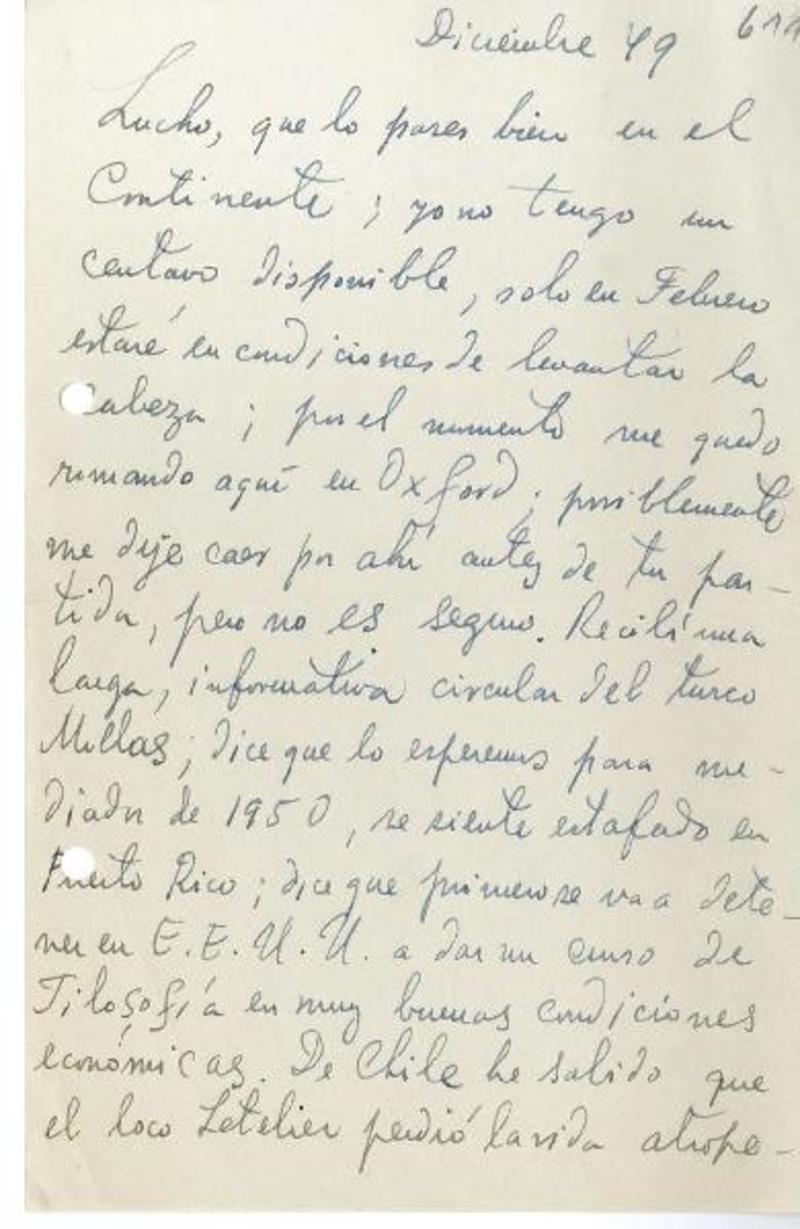 Diciembre 49
Lucho, que lo pases bien en el
Continente; yo no tengo un
centavo disponible, solo en Febrero
estaré en condiciones de levantar la
cabeza; por el momento me quedo
rumando aquí en Oxford; posiblemente
me deje caer por ahí antes de tu par-
tida, pero no es seguro. Recibí una
larga, informativa circular del turco
Millas; dice que lo esperemos para me-
diados de 1950, se siente estafado en
Puerto Rico; dice que primero se va a dete-
ner en E.E.U.U. a dar un curso de
Filosofía en muy buenas condiciones
económicas. De Chile he sabido que
el loco Letelier perdió la vida atrope-